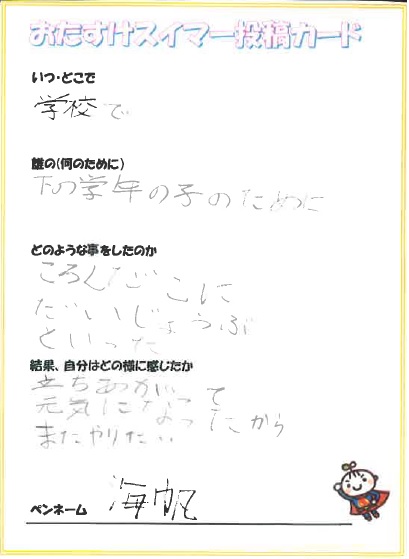 おたすけスイマー投稿カード
いつ・どこで
学校で
誰の(何のために)
下の学年の子のために
どのような事をしたのか
ころんだ こに
だいじょうぶ
といった
結果、自分はどの様に感じたか
立ちあがって
元気になったから
またやりたい
ペンネーム 海帆